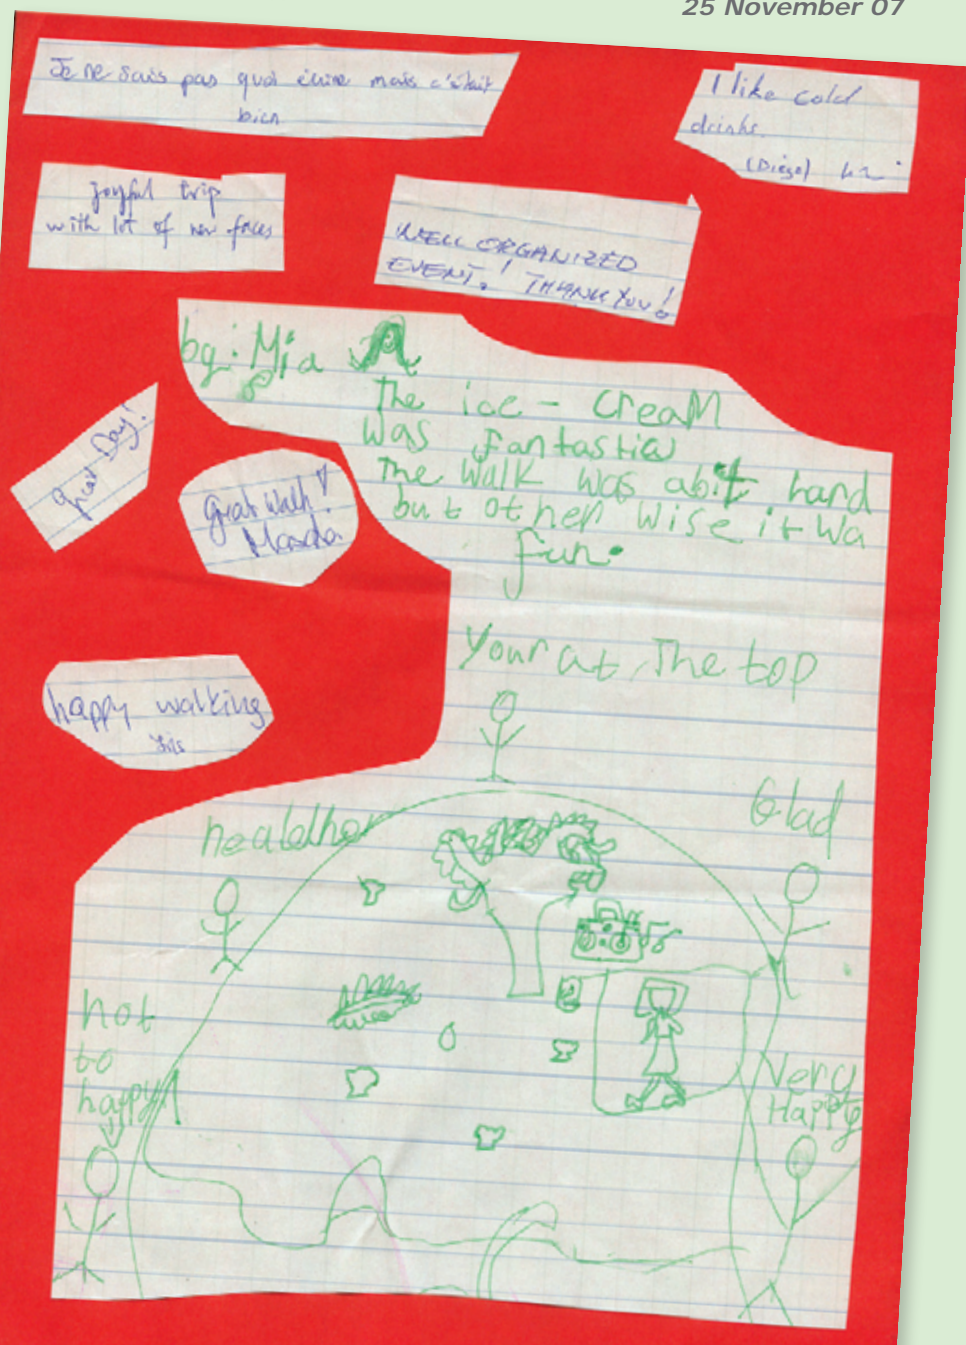 25 November 07
Je ne sais pas quoi écrire mais c'était
bien
I like cold
drinks.
(Diego)
joyful trip
with lot of new faces
WELL ORGANIZED
EVENT! THANK YOU!
by: Mia
The ice - creaM
was fantastic
The walk was abit hard
but other wise it wa
fun.
great Day!
Great Walk!
happy walking
Your at The top
Glad
healdher
not
to
happy
Very
Happy